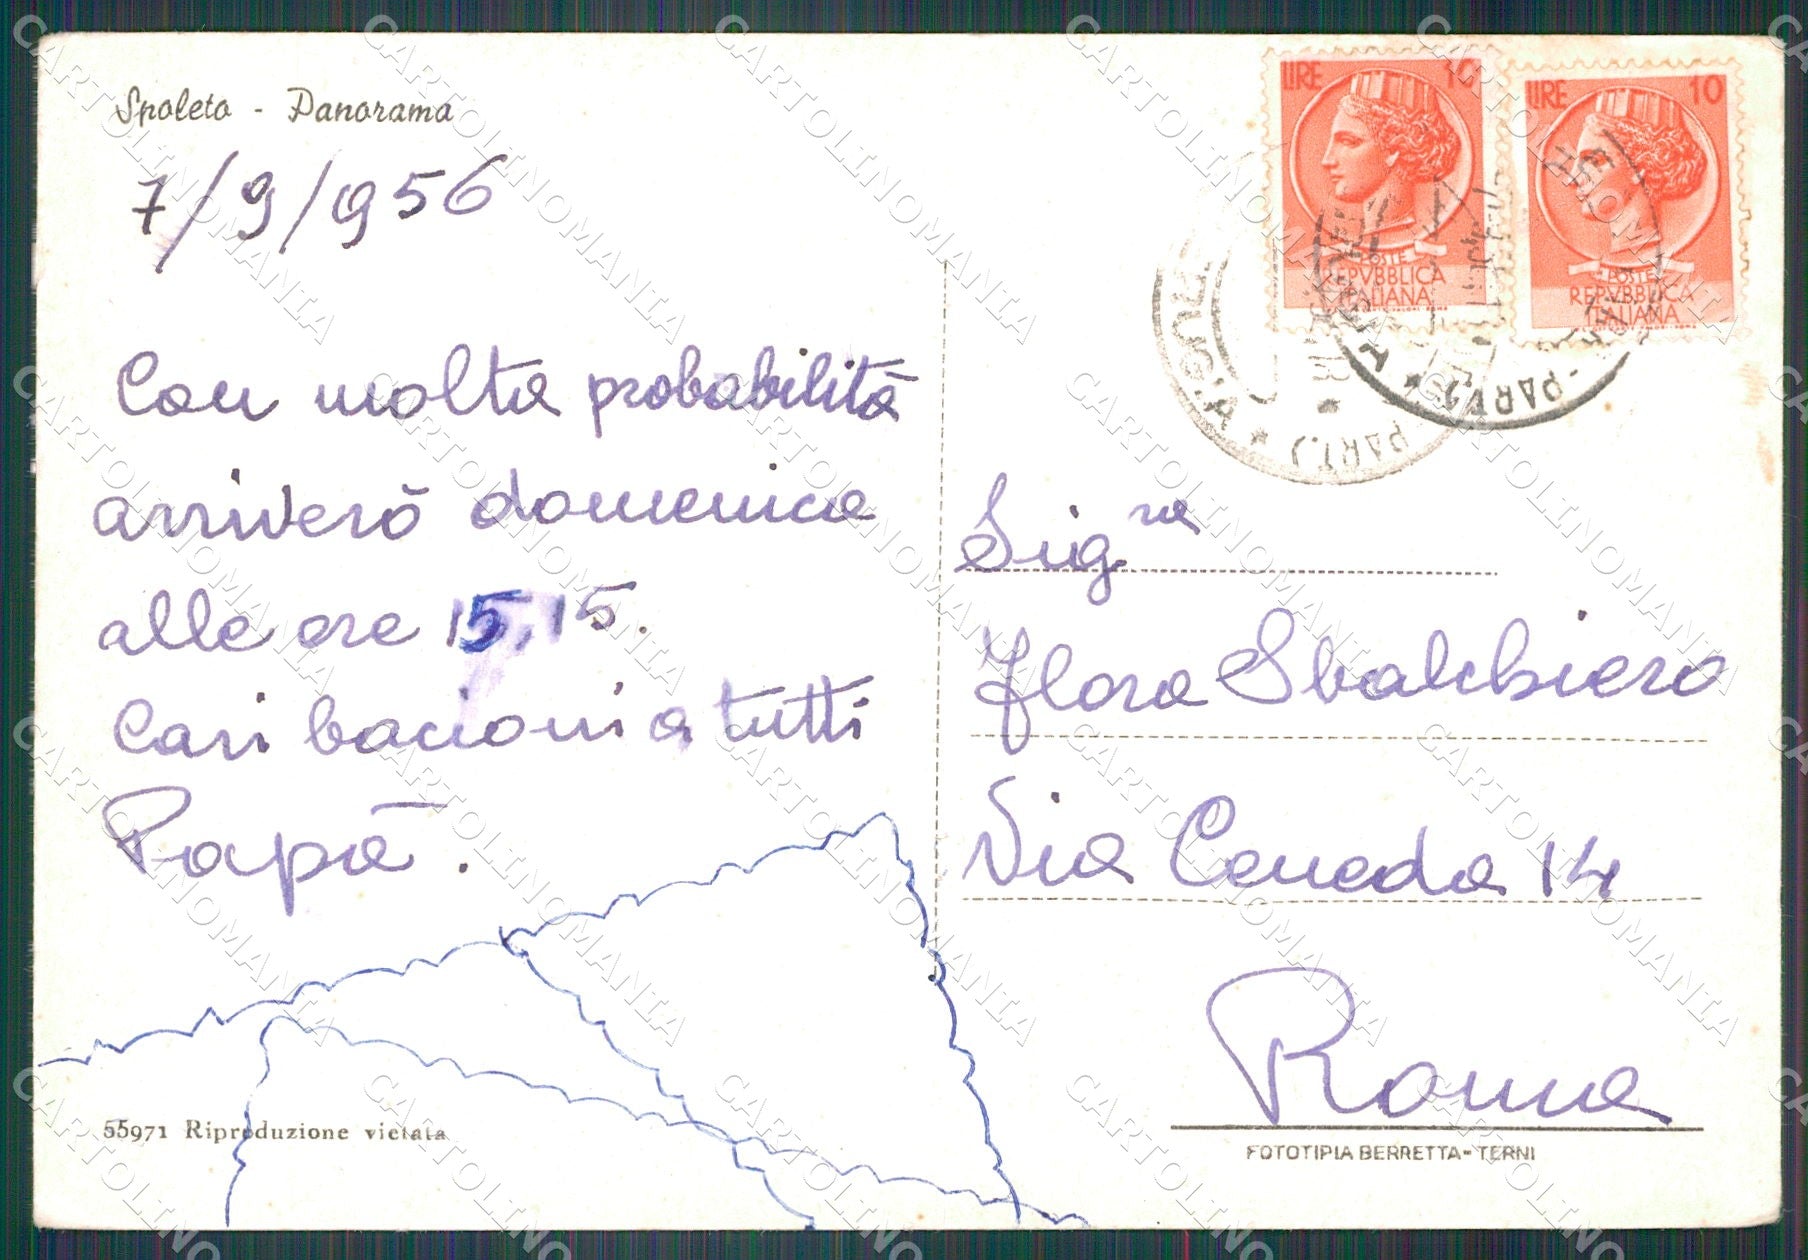 Spoleto - Panorama
7/9/956
Con molta probabilità
arriverò domenica
alle ore 15,15.
Cari bacioni a tutti
Papà.
55971 Riproduzione vietata
LIRE 10
POSTE
REPVBBLICA
ITALIANA
LIRE 10
POSTE
REPVBBLICA
ITALIANA
PART.)
PART.)
Sig.ra
Flora Sbalchiero
Via Ceneda 14
Roma
FOTOTIPIA BERRETTA - TERNI
CARTOLINOMANIA